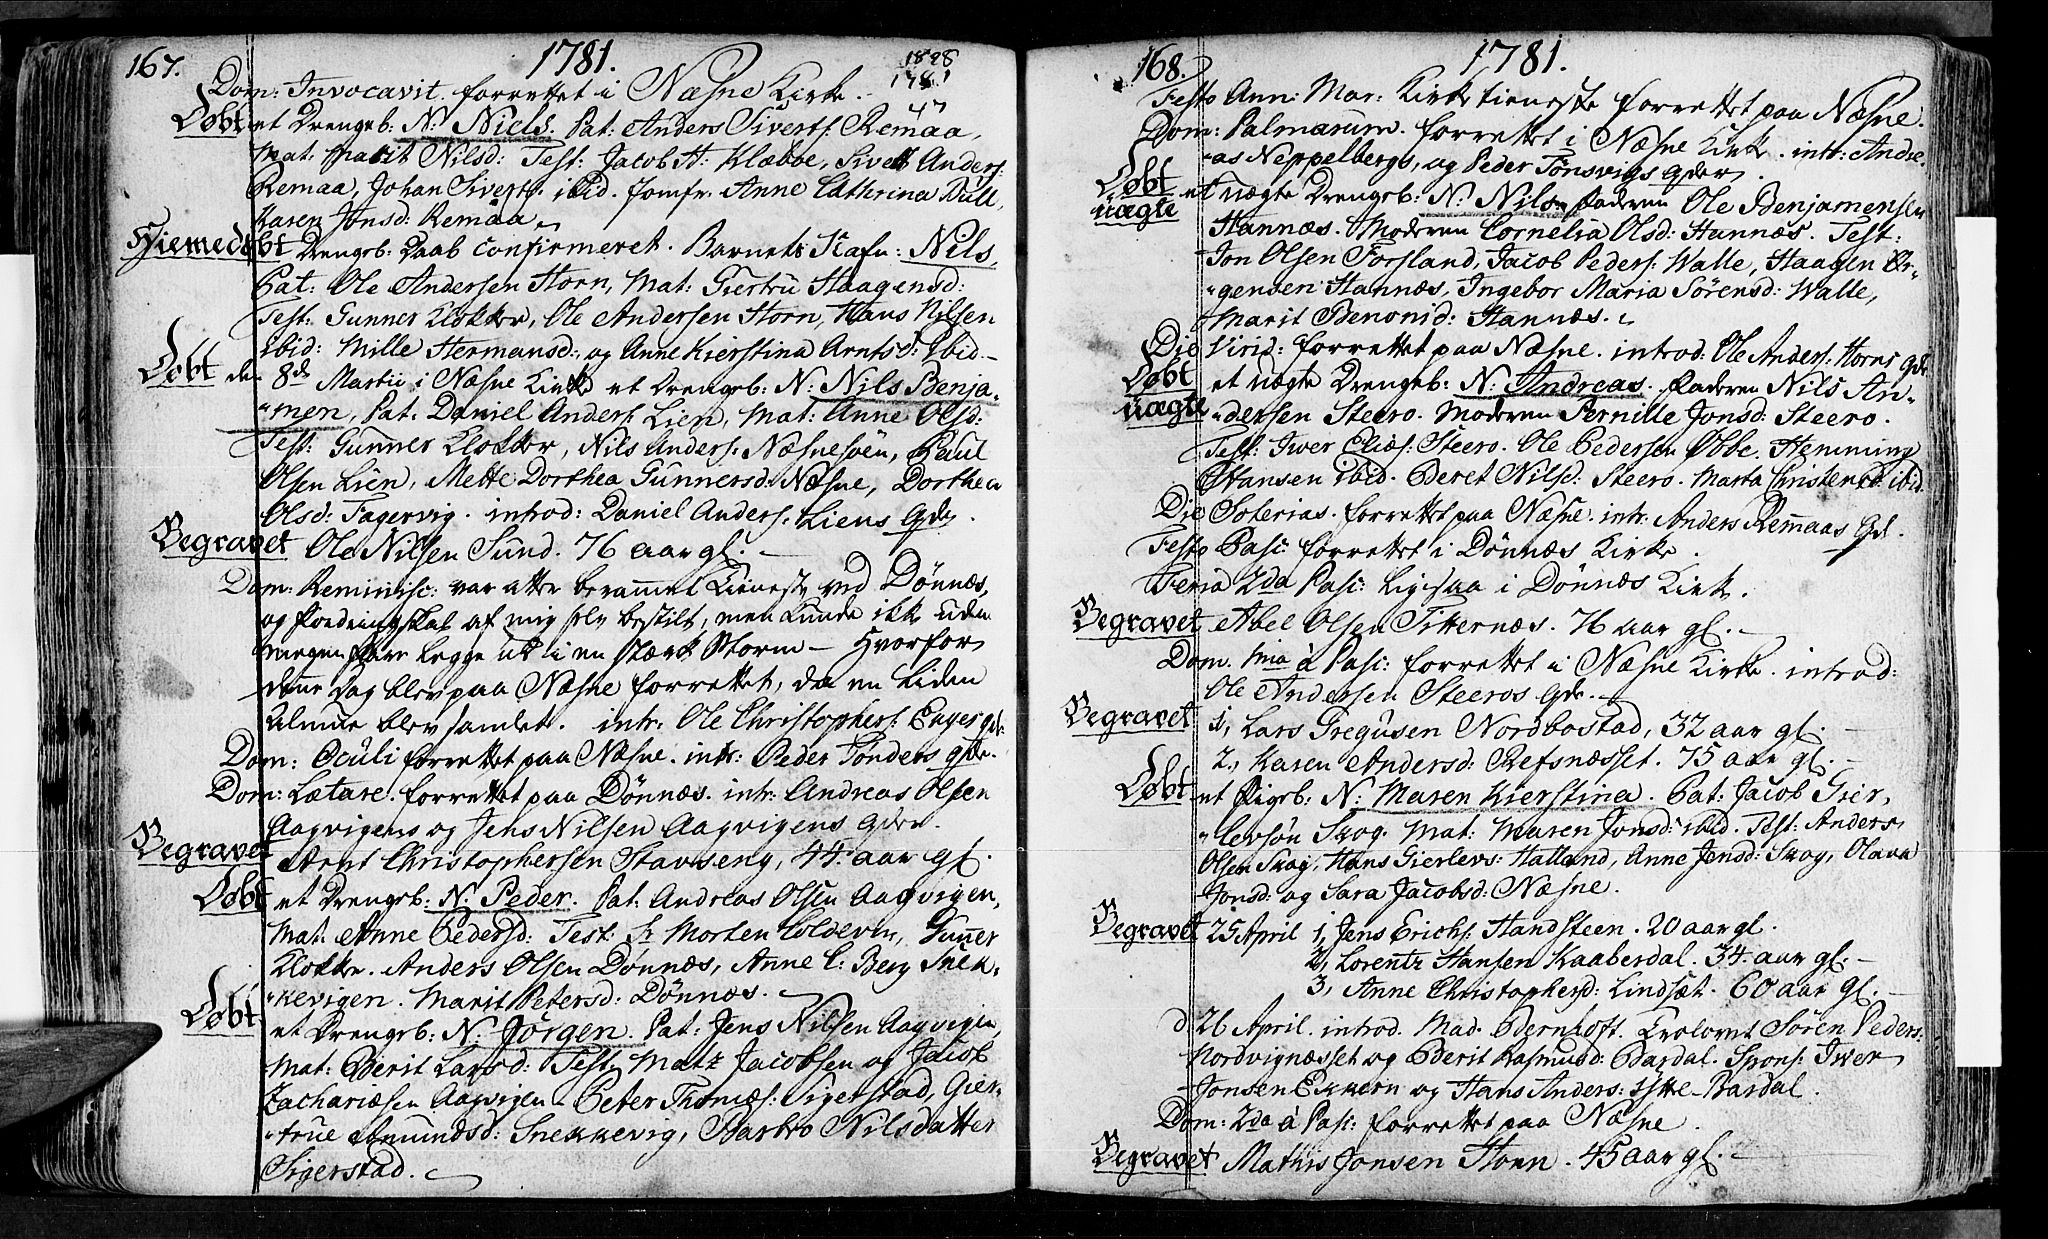 167.
1781.
1828
1781
47
Dom: Invocavit. forrettet i Næsne Kirke.
Løbt et Drengeb: N: Niels. Pat: Anders Siverts: Remaa,
Mat: Marit Nilsd: Test: Jacob H: Klæboe, Sivert Anders:
Remaa, Johan Siverts: ibid. Jomfr: Anne Cathrina Bull,
Karen Jonsd: Remaa.
Hiemedøbt Drengeb: Daab confirmeret. Barnets Nafn: Nils,
Pat: Ole Andersen Horn, Mat: Giertru Haagensd:
Test: Gunner Klokker, Ole Andersen Horn, Hans Nilsen
ibid: Mille Hermansd: og Anne Kierstina Arntsd: ibid -
Døbt den 8de Martii i Næsne Kirke et Drengeb: N: Nils Benja-
"men, Pat: Daniel Anders: Lien, Mat: Anne Olsd:
Test: Gunner Klokker, Nils Anders: Næsnesøen, Paul
Olsen Lien, Mette Dorthea Gunnersd: Næsne, Dorthea
Olsd: Fagervig. introd: Daniel Anders: Liens Qde.
Begravet Ole Nilsen Sund. 76 aar gl.
Dom: Reminisc: var atter berammet Tieneste ved Dønnæs,
og Fordringskab af mig selv bestilt, men kunde ikke uden
megen fare legge ud i en stærk Storm - Hvorfor
denne Dag blev paa Næsne forrettet, da en liden
Almue blev samlet. intr: Ole Christophers: Enges Qde:
Dom: Oculi forrettet paa Næsne. intr: Peder Tønders Qde.
Dom: Lætare. forrettet paa Dønnæs. intr: Andreas Olsen
Aagvigens og Jens Nilsen Aagvigens Qder.
Begravet Arnt Christophersen Stavseng, 44 aar gl.
Døbt et Drengeb: N: Peder. Pat: Andreas Olsen Aagvigen,
Mat: Anne Pedersd: Test: Sr Morten Coldevin, Gunner
Klokker. Anders Olsen Dønnæs, Anne C: Berg Snek-
"kevigen. Marit Petersd: Dønnæs.
Døbt et Drengeb: N: Jørgen. Pat: Jens Nilsen Aagvigen,
Mat: Berit Larsd: Test: Matz Jacobsen og Jacob
Zachariæsen Aagvigen. Peter Thomæs: Sigerstad, Gier-
"true Amundsd: Snekkevig, Barbro Nilsdatter
Sigerstad.
168.
1781.
Festo Ann: Mar: Kirketieneste forrettet paa Næsne.
Dom: Palmarum. forrettet i Næsne Kirke. intr: Andre-
"as Neppelbergs, og Peder Tonsvigs Qder.
Døbt uægte et uægte Drengeb: N: Nils, Faderen Ole Benjamensen
Hannæs. Moderen Cornelia Olsd: Hannæs. Test:
Jon Olsen Forsland, Jacob Peders: Walle, Haagen Ør-
"gensen Hannæs, Ingebor Maria Sørensd: Walle,
Marit Benonid: Hannæs.
Die Virid: forrettet paa Næsne. introd: Ole Anders: Horns Qde
Døbt uægte et uægte Drengeb: N: Andreas. Faderen Nils An-
"dersen Steero. Moderen Pernille Jonsd: Steero.
Test: Iwer Eliæs: Steero. Ole Pedersen Øbbe. Hemming
Hansen ibid. Beret Nilsd: Steero. Marta Christensd: ibid.
Die Soterias. forrettet paa Næsne. intr: Anders Remaas Qde.
Festo Pasc: forrettet i Dønnæs Kirke.
Feria 2da Pasc: ligesaa i Dønnæs Kirke.
Begravet Abel Olsen Titternæs. 76 aar gl.
Dom. 1ma à Pasc: forrettet i Næsne Kirke. introd:
Ole Andersen Steeros Qde.
Begravet 1, Lars Gregusen Nordbostad, 32 aar gl.
2, Karen Andersd: Refsnæsset. 75 aar gl.
Døbt et Pigeb: N: Maren Kierstina. Pat: Jacob Gier-
"levsøn Skog. Mat: Maren Jonsd: ibid. Test: Anders
Olsen Skog, Hans Gierlevs: Hatland, Anne Jensd: Skog, Olava
Jonsd: og Sara Jacobsd: Næsne.
Begravet 25 April 1, Jens Erichs: Handsteen. 20 aar gl.
2, Lorentz Hansen Kaaberdal. 34 aar gl.
3, Anne Christophersd: Lindsæt. 60 aar gl.
d. 26 April. introd. Mad. Bernhoft. Trolovet Søren Peders:
Nordvignæsset og Berit Rasmusd: Bardal. Spons: Iwer
Jonsen Ekkern og Hans Anders: ytre-Bardal.
Dom: 2da à Pasc: forrettet paa Næsne.
Begravet Mathis Jonsen Horn. 45 aar gl.